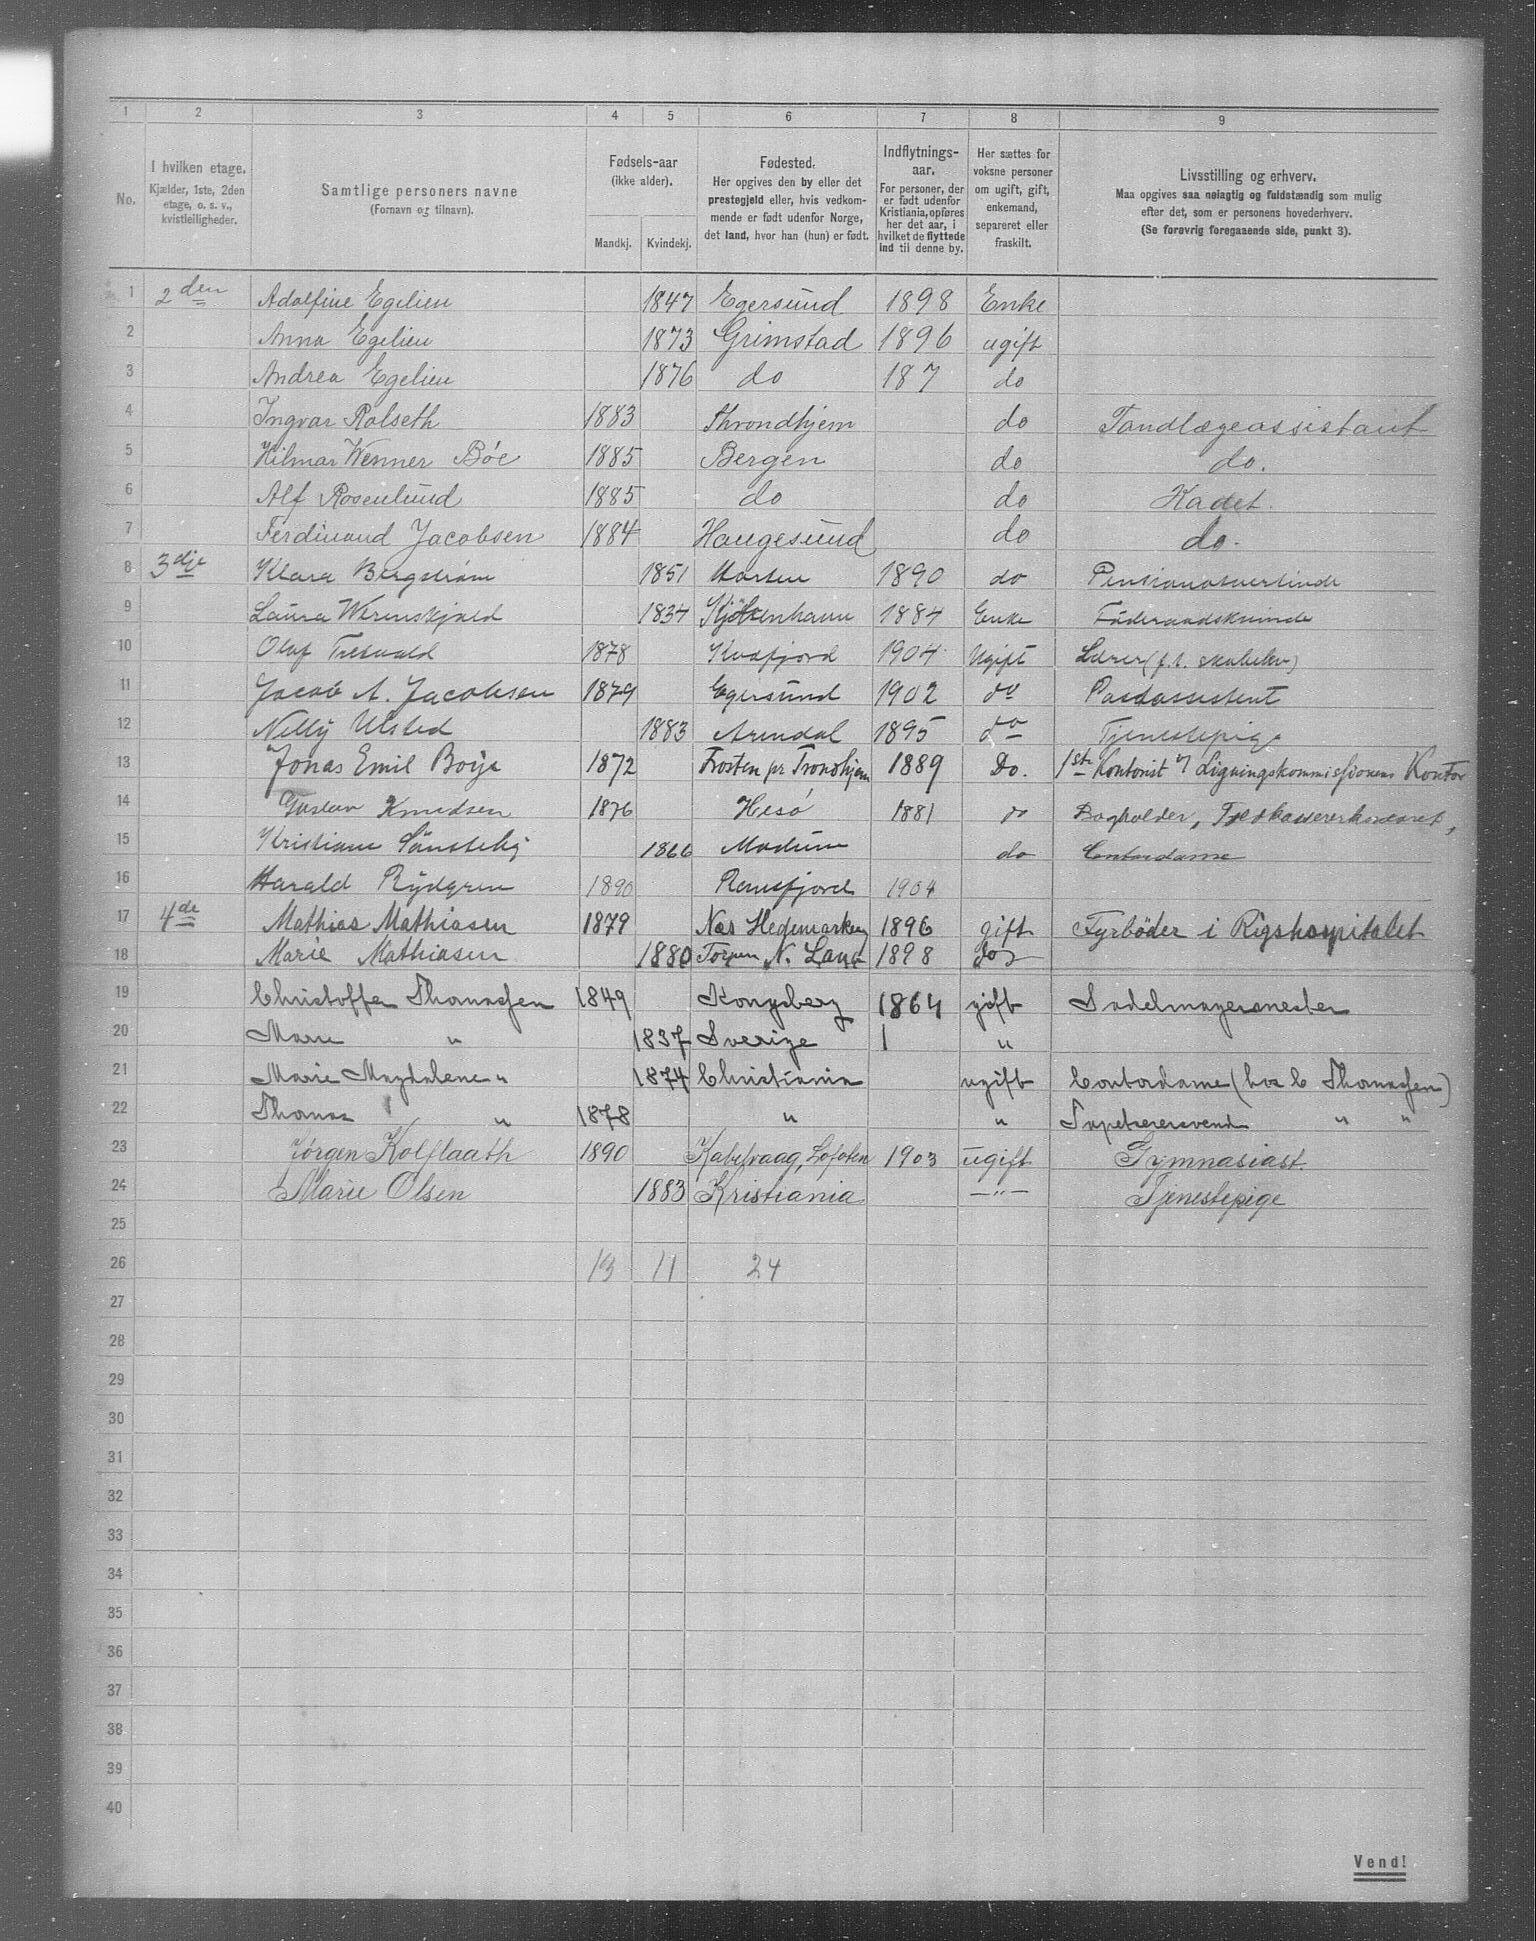 1 2 3 4 5 6 7 8 9
No. I hvilken etage. Kjælder, 1ste, 2den etage, o. s. v., kvistleiligheder. Samtlige personers navne (Fornavn og tilnavn). Fødsels-aar (ikke alder). Mandkj. Kvindekj. Fødested. Her opgives den by eller det prestegjeld eller, hvis vedkommende er født udenfor Norge, det land, hvor han (hun) er født. Indflytnings-aar. For personer, der er født udenfor Kristiania, opføres her det aar, i hvilket de flyttede ind til denne by. Her sættes for voksne personer om ugift, gift, enkemand, separeret eller fraskilt. Livsstilling og erhverv. Maa opgives saa nøiagtig og fuldstændig som mulig efter det, som er personens hovederhverv. (Se forøvrig foregaaende side, punkt 3).
1 2den Adolfine Egelien 1847 Egersund 1898 Enke
2 Anna Egelien 1873 Grimstad 1896 ugift
3 Andrea Egelien 1876 do 187 do
4 Ingvar Rolseth 1883 Throndhjem do Tandlægeassistant
5 Hilmar Wenner Böe 1885 Bergen do do.
6 Alf Rosenlund 1885 do do Kadet.
7 Ferdinand Jacobsen 1884 Haugesund do do.
8 3dje Klara Bergström 1851 Horten 1890 do Pensionatsvertinde
9 Laura Werenskjold 1834 Kjöbenhavn 1884 Enke Föderaadskvinde
10 Olaf Tresvald 1878 Kvæfjord 1904 Ugift Lærer (f.t. skoleelev)
11 Jacob A. Jacobsen 1879 Egersund 1902 do Postassistent
12 Nelly Ulsted 1883 Arendal 1895 do Tjenestepige
13 Jonas Emil Boije 1872 Frosten pr Trondhjem 1889 Do. 1ste Kontorist v/ Ligningskommissionens Kontor
14 Gustav Knudsen 1876 Hesö 1881 do Bogholder,
15 Kristiane Sönsteby 1866 Modum do Contordame
16 Harald Rydgren 1890 Ranefjord 1904
17 4de Mathias Mathiasen 1879 Næs Hedemarken 1896 gift Fyrböder i Rigshospitalet
18 Marie Mathiasen 1880 Torpen N. Land 1898 do
19 Christoffer Thomassen 1849 Kongsberg 1864 gift Sadelmagermester
20 Marie " 1837 Sverige 1 "
21 Marie Magdalene " 1874 Christiania ugift Contordame (hos C Thomassen)
22 Thomas " 1878 " " Tapetserersvend " "
23 Jørgen Kolflaath 1890 Kabelvaag, Lofoten 1903 ugift Gymnasiast.
24 Marie Olsen 1883 Kristiania —"— Tjenestepige
25
26 13 11 24
27
28
29
30
31
32
33
34
35
36
37
38
39
40
Vend!